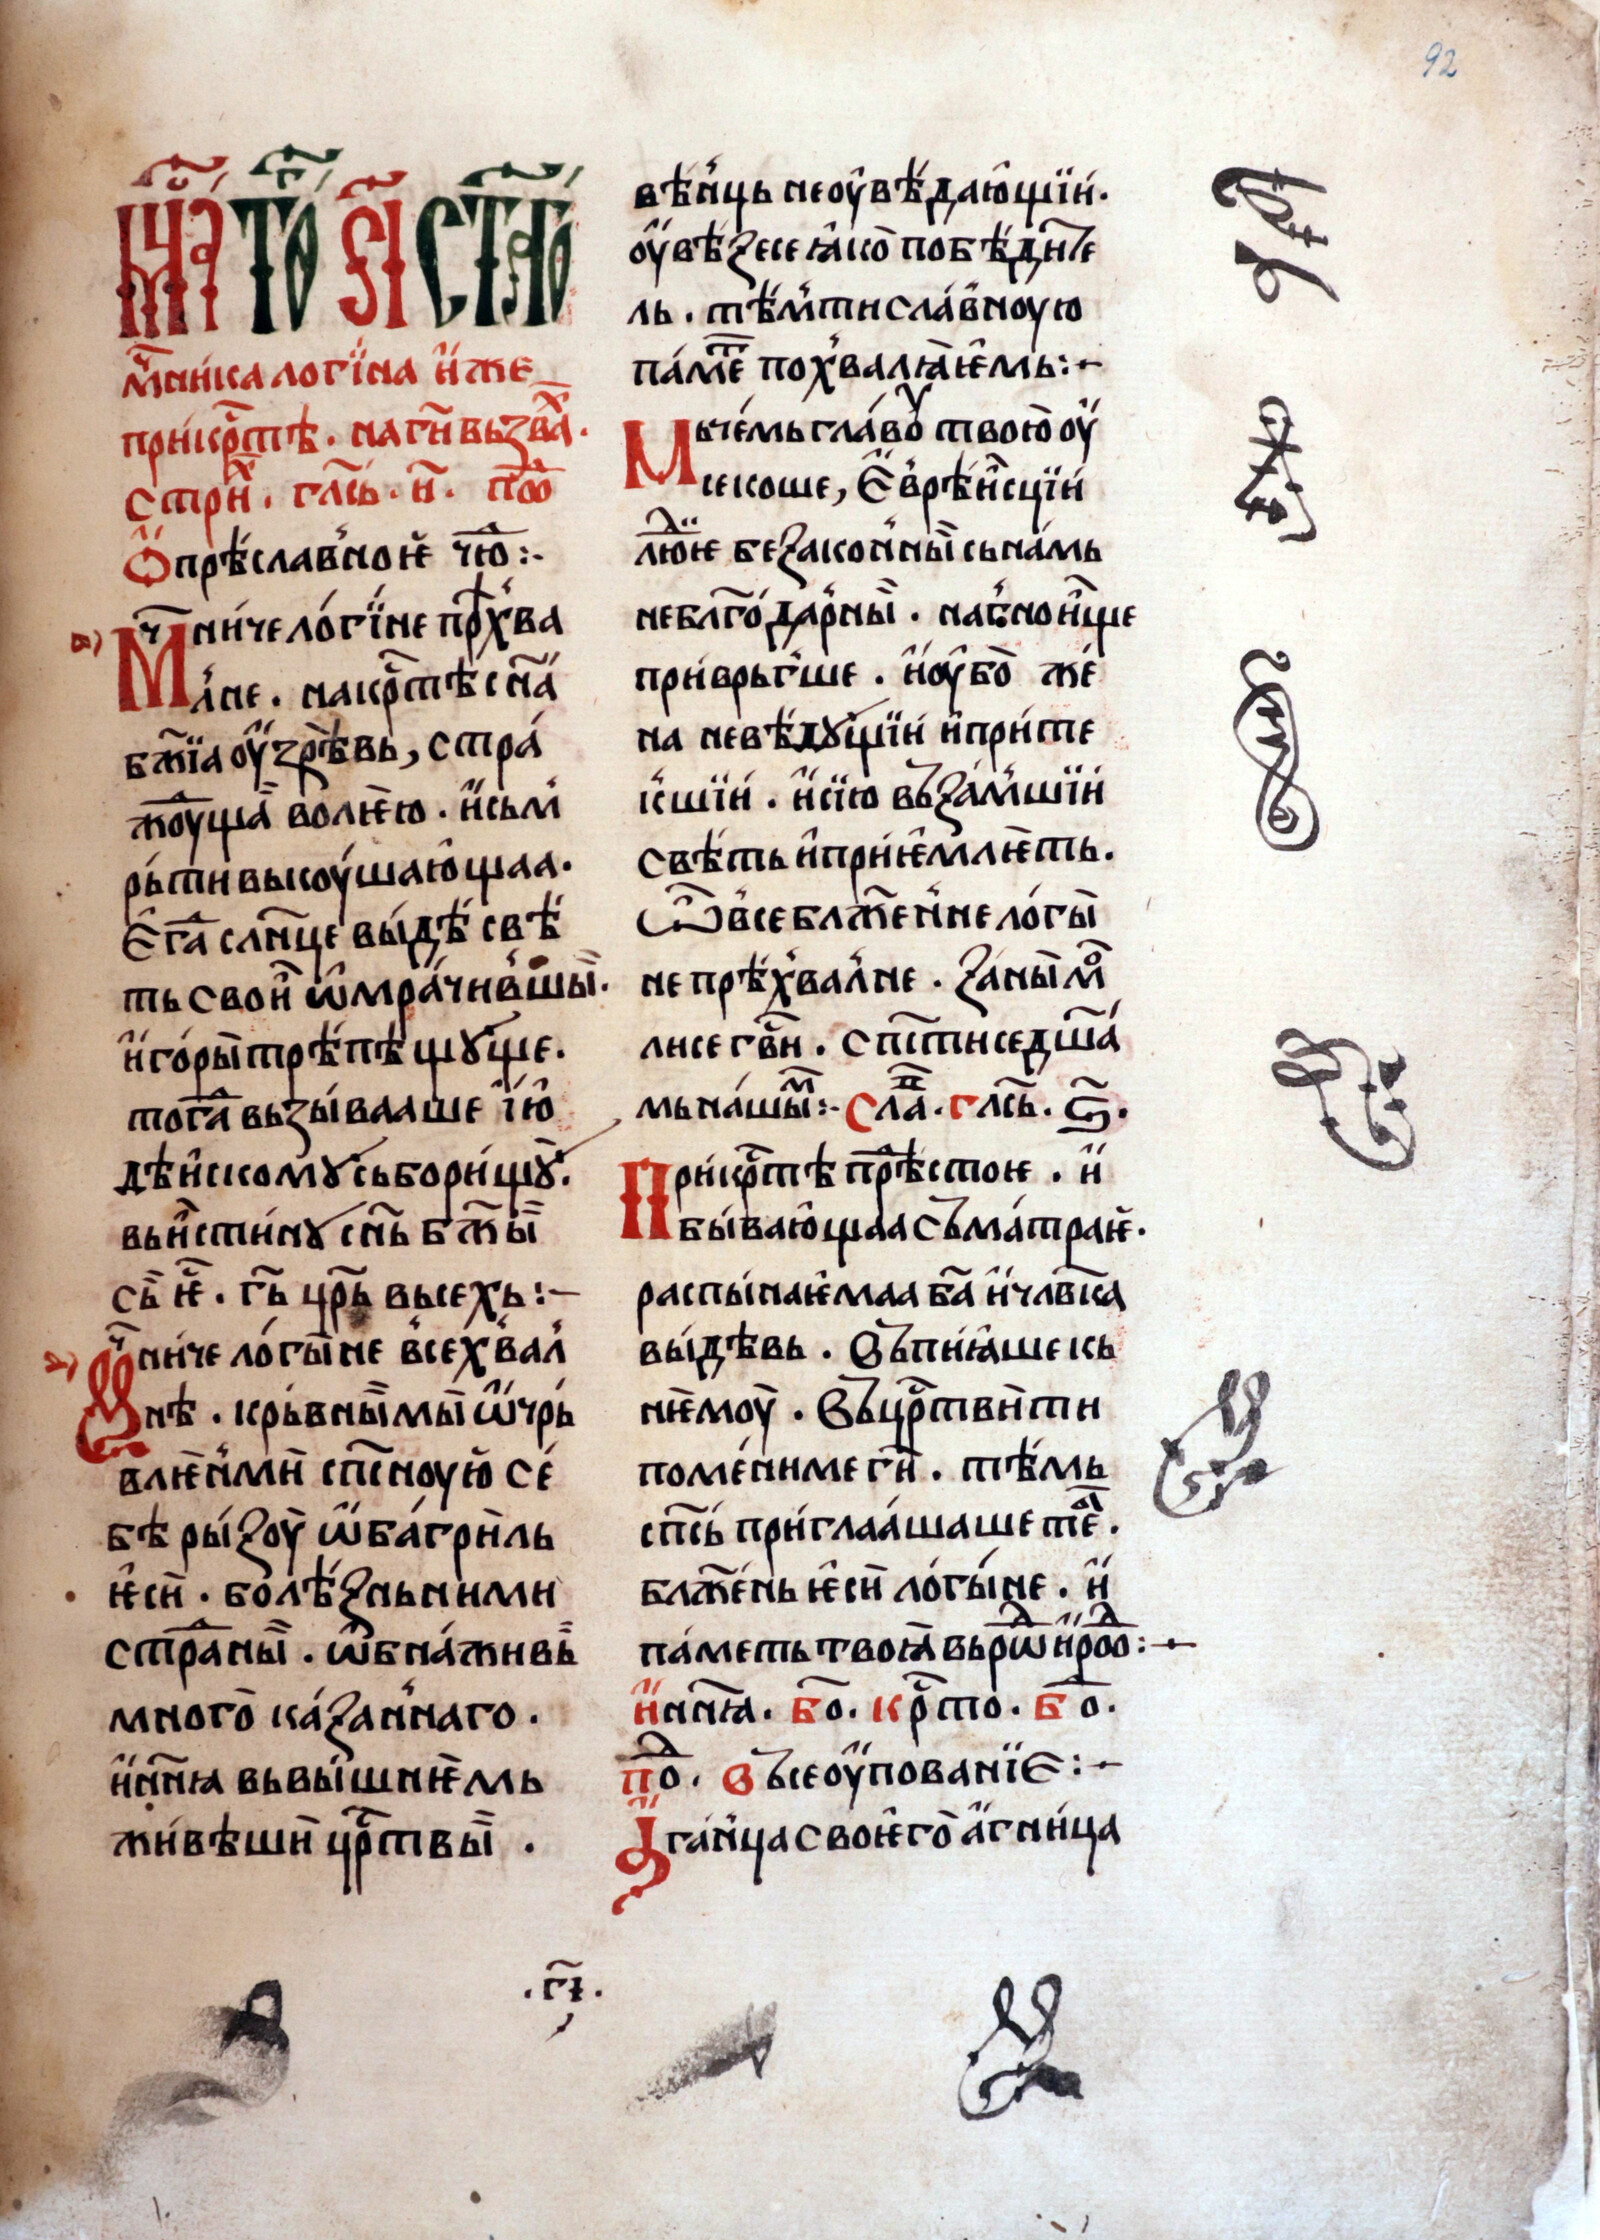 92
мц҃а то҃ ѕ҃і ст҃го
мч҃нıка логіна и҆же
прикрⷭ҇тѣ. на гн҃ вьзва.
стрⷯи. гла҃сь. и҃. поⷣ
Ѽпрѣславноѥ чюⷣ:-
Мч҃ниче ло́гіне прⷮѣхва
л'не. накрⷭ҇тѣ сн҃а
бж҃їа оу҆зрѣвь, стра́
жоуща волѥю. и҆сьм'
рьти вькоу́шаю҆щаа.
Єгⷣа слн҃це вы́дѣ свѣ
ть свои ѡ҆мра́чив'шы.
и҆го́ры трѣпѣщꙋще.
тогⷣа вьзы́вааше і҆ю҆
дѣи҆скомꙋ сьбори́щꙋ.
вьи҆стинꙋ сн҃ь бж҃ыи
сы̏ ѥⷭ҇. гь҃ црь҃ вьсехь:-
Мч҃ниче ло́гыне в'сехвал'
нѣ. крьвны́мы ѡ҆чрь
влѥн'ми спс҃ноую се́
бѣ ры́зоу ѡ҆ба́гриль
ѥ҆си. болѣ́зньними
страⷣны. ѡ҆бна́живь
много ка́зан'наго.
и҆нн҃ꙗ вьвы́шнѥмь
жи́вѣши црⷭ҇твы.
вѣн'ць неоу҆вѣдаю҆щїи.
оу҆вѣзесе ꙗ҆ко побѣдите
ль. тѣм'ти сла́в'ноую
па́меⷮ похвалꙗѥ҆мь:-
Мьче́мь гла́воу твою оу҆
секоше, Є҆врѣи҆сцїи
люⷣїе безакон'ны сьна́мь
неблг҃ода́рны. наб'нои҆ще
при́врьг'ше. и҆оу҆бо же́
на невѣдꙋщїи и҆при́те
к'шїи. и҆сїю вьзам'шїи
свѣть и҆при́ѥмлѥть.
Ѽ в'себлж҃ен'не ло́гы
не прѣхвал'не. за́ны моⷧ
лисе гв҃и. спⷭ҇тисе дш҃а
мь на́шыⷨ:- Слаⷡ. гла҃сь. ѕ҃.
При́крⷭ҇тѣ прѣⷣстоѥ. и҆
бы́ваю҆щаа сьма́траѥ.
распы́наѥ҆маа ба҃ и҆члв҃ка
вы́дѣвь. вьпиꙗ҆ше кь
нѥмоу. вьцрⷭ҇твіи҆ти
поме́ни ме ги҃. тѣ́мь
спс҃ь при́глаа́шаше теⷠ.
блж҃е́нь ѥ҆си ло́гыне. и҆
па́меть твоꙗ вьроⷣ и҆роⷣ:-
И҆нн҃ꙗ. бо҃. крⷭ҇то. бо҃.
поⷣ. Вьсеоу҆пованїе:-
Ꙗ҆га́н'ца своѥ҆го а҆гни́ца
.г҃і.